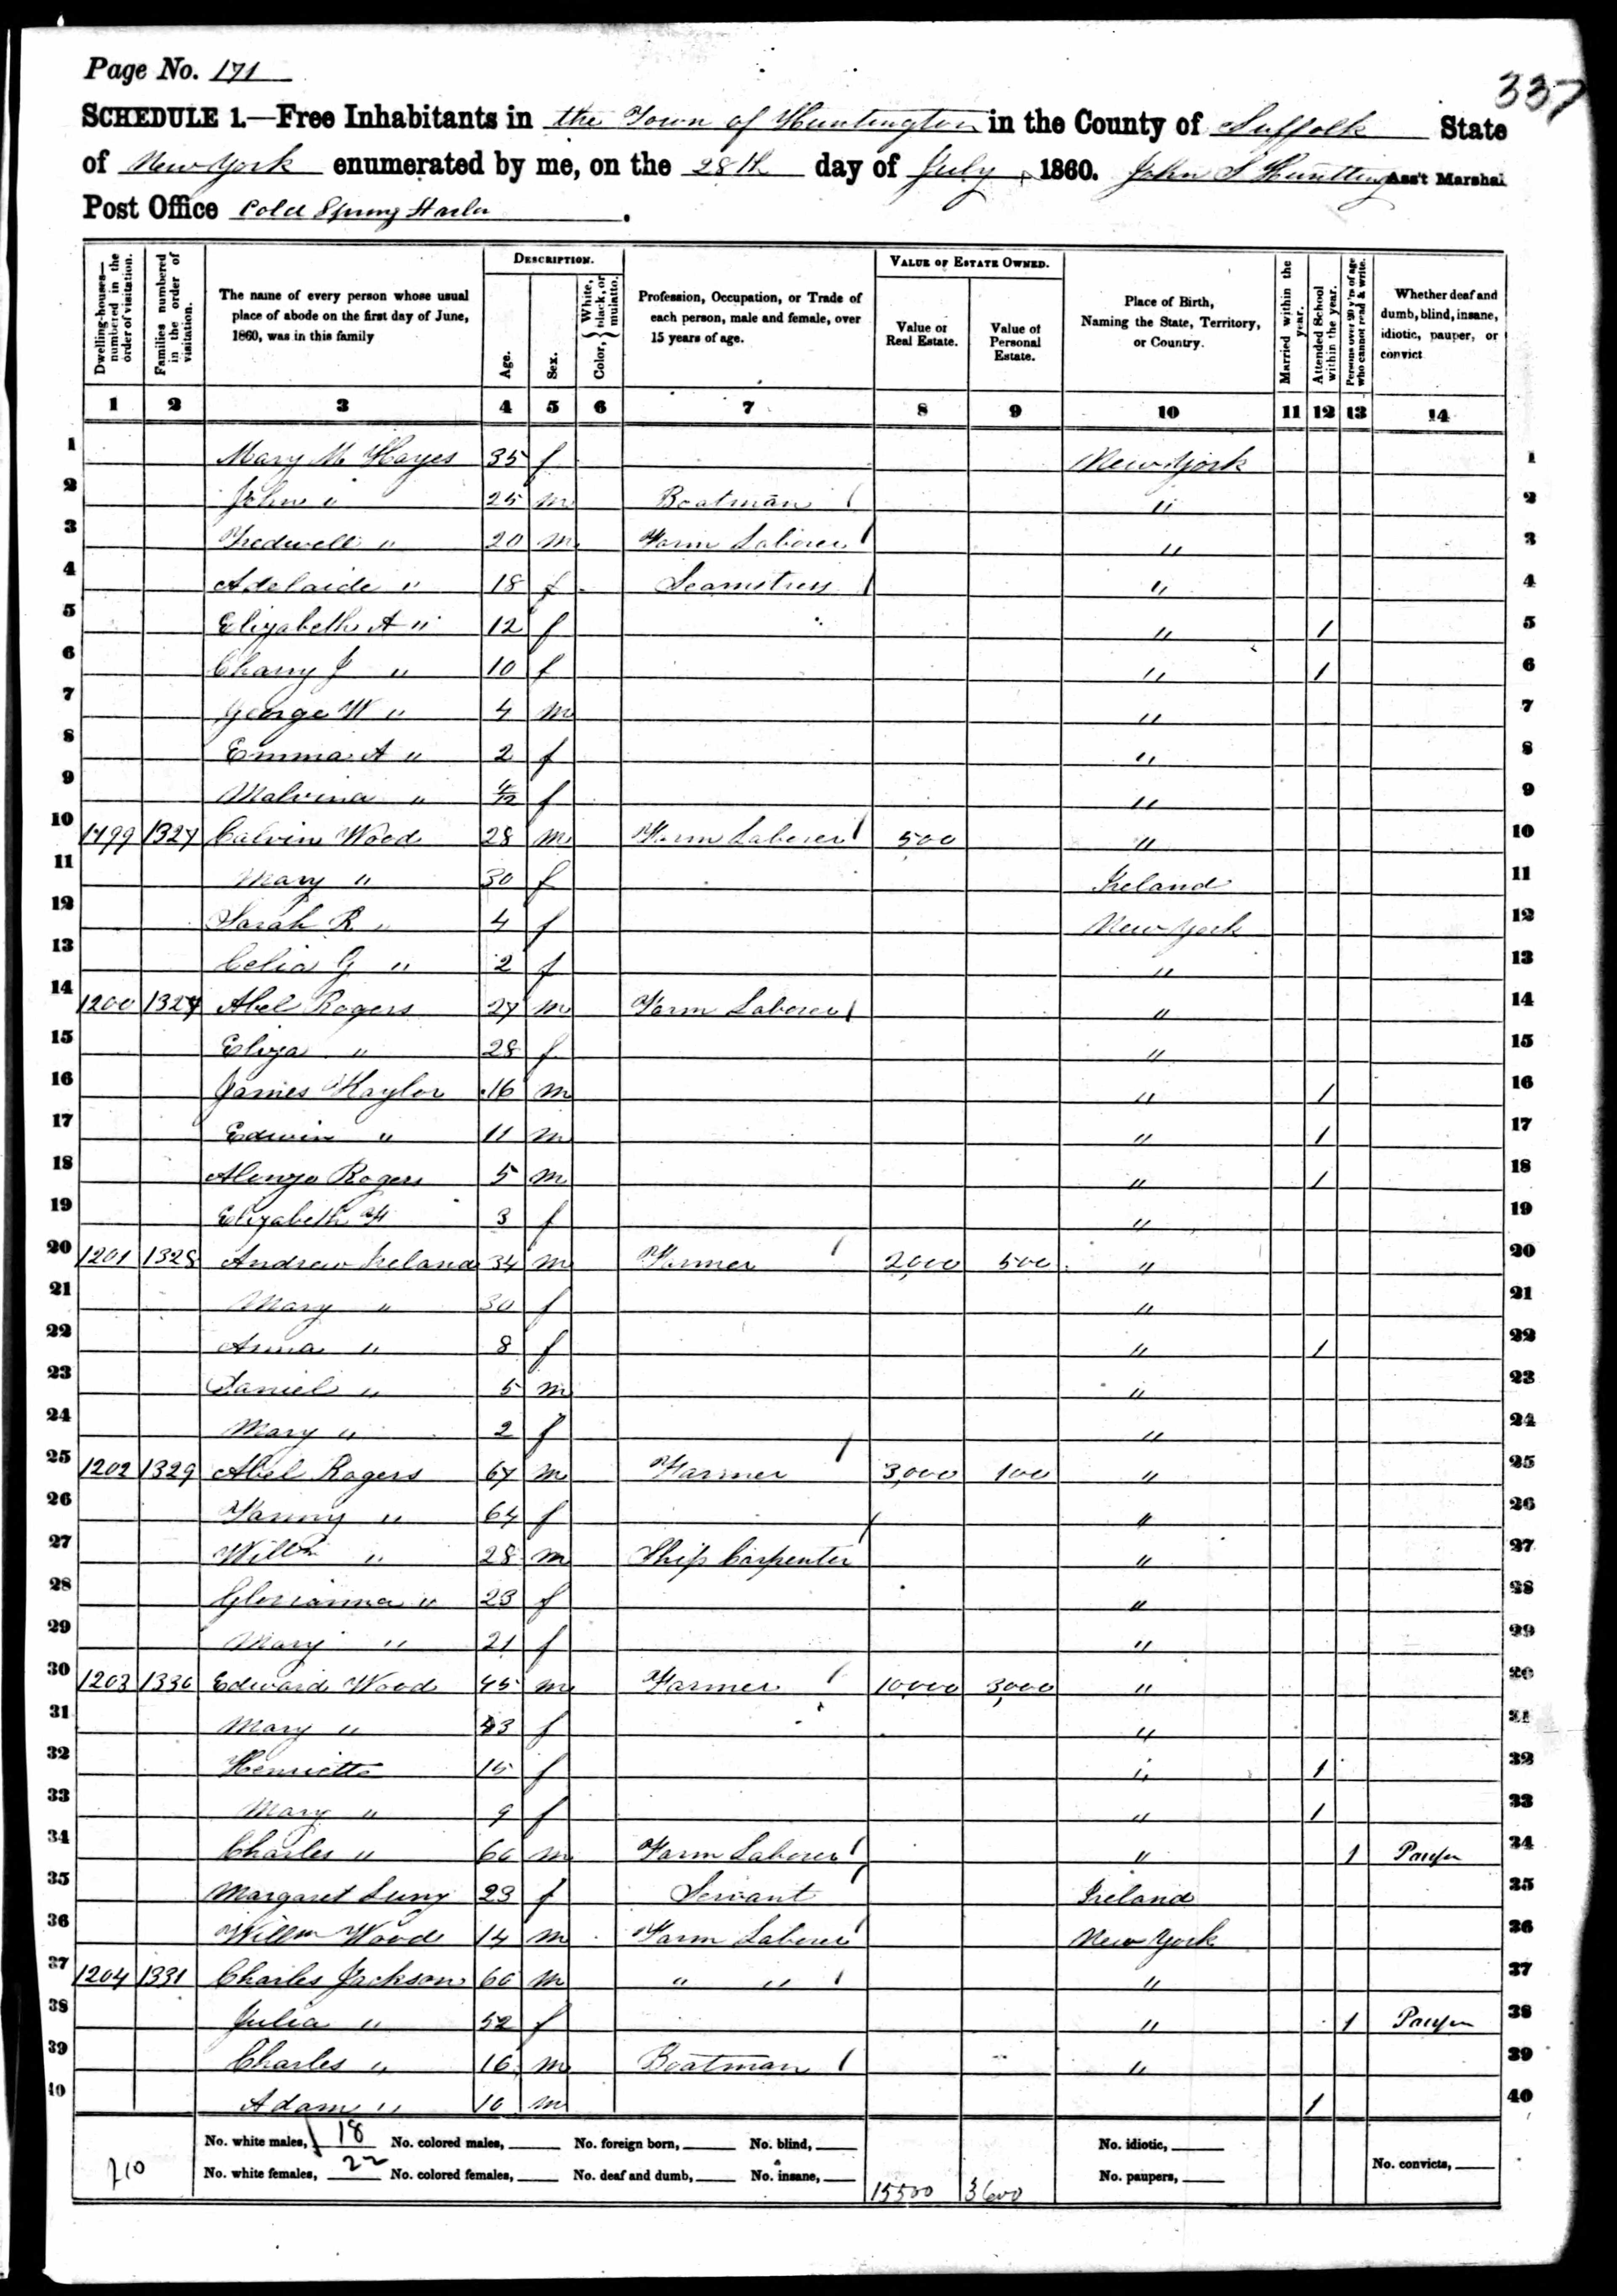 Page No. 171
337
SCHEDULE 1.—Free Inhabitants in the Town of Huntington in the County of Suffolk State
of New York enumerated by me, on the 28th day of July 1860. John S Huntting Ass't Marshal
Post Office Cold Spring Harbor.
Dwelling-houses—numbered in the order of visitation.
Families numbered in the order of visitation.
The name of every person whose usual place of abode on the first day of June, 1860, was in this family
DESCRIPTION.
Age.
Sex.
Color, { White, black, or mulatto.
Profession, Occupation, or Trade of each person, male and female, over 15 years of age.
VALUE OF ESTATE OWNED.
Value of Real Estate.
Value of Personal Estate.
Place of Birth, Naming the State, Territory, or Country.
Married within the year.
Attended School within the year.
Persons over 20 y'rs of age who cannot read & write.
Whether deaf and dumb, blind, insane, idiotic, pauper, or convict
1 2 3 4 5 6 7 8 9 10 11 12 13 14
1 Mary M Hayes 35 f New York 1
2 John " 25 m Boatman / " 2
3 Tredwell " 20 m Farm Laborer / " 3
4 Adelaide " 18 f Seamstress / " 4
5 Elizabeth A " 12 f " / 5
6 Charry J " 10 f " / 6
7 George W " 4 m " 7
8 Emma A " 2 f " 8
9 Malvina " f " 9
10 1199 1327 Calvin Wood 28 m Farm Laborer / 500 " 10
11 Mary " 30 f Ireland 11
12 Sarah R " 4 f New York 12
13 Celia G " 2 f " 13
14 1200 1327 Abel Rogers 27 m Farm Laborer / " 14
15 Eliza " 28 f " 15
16 James 16 m " / 16
17 Edwin " 11 m " / 17
18 Alonzo Rogers 5 m " / 18
19 Elizabeth 3 f " 19
20 1201 1328 Andrew Ireland 34 m Farmer / 2000 500 " 20
21 Mary " 30 f " 21
22 Anna " 8 f " / 22
23 Daniel " 5 m " 23
24 Mary " 2 f " 24
25 1202 1329 Abel Rogers 67 m Farmer / 3,000 100 " 25
26 Fanny " 64 f " 26
27 Willm " 28 m Ship Carpenter / " 27
28 Glorianna " 23 f " 28
29 Mary " 21 f " 29
30 1203 1330 Edward Wood 45 m Farmer / 10,000 3,000 " 30
31 Mary " 43 f " 31
32 Henrietta 15 f " 1 32
33 Mary " 9 f " 1 33
34 Charles " 60 m Farm Laborer / " 1 Pauper 34
35 Margaret 23 f Servant / Ireland 35
36 Willm Wood 14 m Farm Laborer / New York 36
37 1204 1331 Charles Jackson 60 m " " / " 37
38 Julia " 52 f " 1 Pauper 38
39 Charles " 16 m Boatman / " 39
40 Adam " 10 m 1 40
No. white males, 18 No. colored males, No. foreign born, No. blind, No. idiotic,
No. white females, 22 No. colored females, No. deaf and dumb, No. insane, 15500 3600 No. paupers, No. convicts,